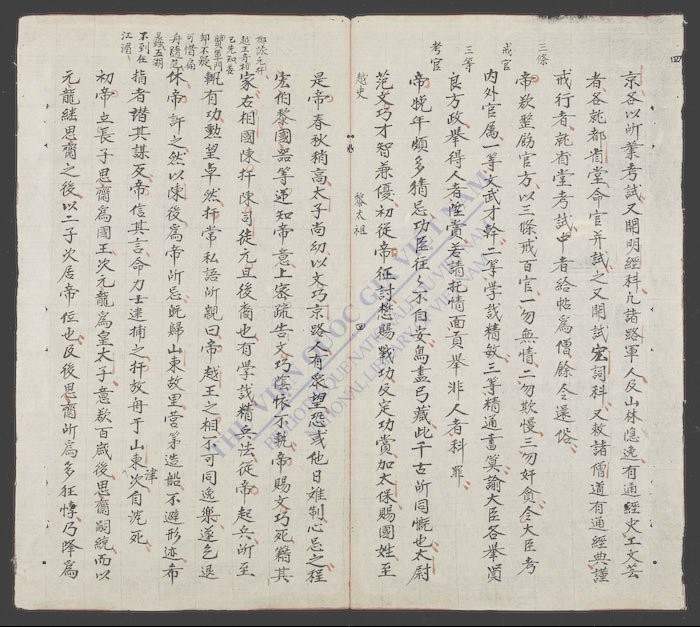 京各以所業考試又開明經科凡諸路軍人及山林隱逸有通經史工文芸
者各就都省堂命官并試之又開試宏詞科又敕諸僧道有通經典謹
戒行者就省堂考試中者給帖爲僧餘令還俗
三條
帝欲整飭官方以三條戒百官一勿無情二勿欺慢三勿奸貪令大臣考
戒官
內外官属一等文武才幹二等学識精敏三等精通書筭諭大臣各舉賢
三等
良方政舉得人者陞賞若請托情面貢舉非人者科罪
考官
帝晚年頗多猜忌功臣往々不自安鳥盡弓藏此千古所同慨也太尉
范文巧才智兼優初從帝征討懋賜戰功及定功賞加太保賜國姓至
越史
黎太祖
四
是帝春秋稍高太子尚幼以文巧京路人有衆望恐或他日难制心忌之程
宏伯黎國器等逆知帝意上密疏告文巧蔭懷不軌帝賜文巧死籍其
家右相國陳扞陳司徒元旦後裔也有学識精兵法從帝起兵所至
輒有功勲望卓然扞常私語所親曰帝越王之相不可同逸樂遂乞退
休帝許之然以陳後爲帝所忌旣歸山東故里营第造船不避形迹布
指者譖其謀反帝信其言命力士逮捕之扞放舟于山東次自沉死
津
初帝立長子思齊爲國王次元龍爲皇太子意欲百歲後思齊嗣統而以
元龍繼思齊之後以二子次居帝位也及後思齊所爲多狂悖乃降爲
越王奇相
已先知委
却不疑
可惜扁
舟隨范
蠡五湖
不到在
江湄